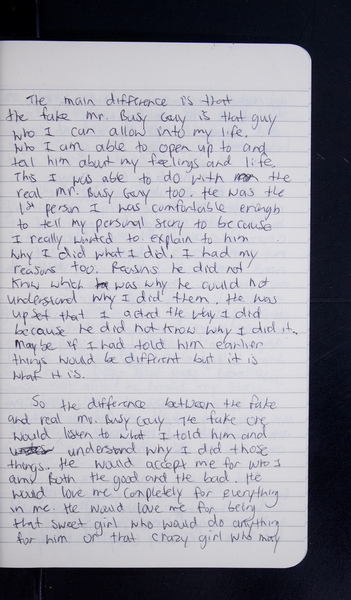 The main difference is that
the fake Mr. Busy Guy is that guy
who I can allow into my life.
who I am able to open up to and
tell him about my feelings and life.
This I was able to do with the
real Mr. Busy Guy too. He was the
1st person I was comfortable enough
to tell my personal story to because
I really wanted to explain to him
why I did what I did. I had my
reasons too. Reasons he did not
know which was why he could not
understand why I did them. He was
upset that I acted the way I did
because he did not know why I did it.
Maybe if I had told him earlier
things would be different but it is
what it is.
So the difference between the fake
and real Mr. Busy Guy. The fake one
would listen to what I told him and
understand why I did those
things. He would accept me for who I
am. Both the good and the bad. He
would love me completely for everything
in me. He would love me for being
that sweet girl who would do anything
for him or that crazy girl who may